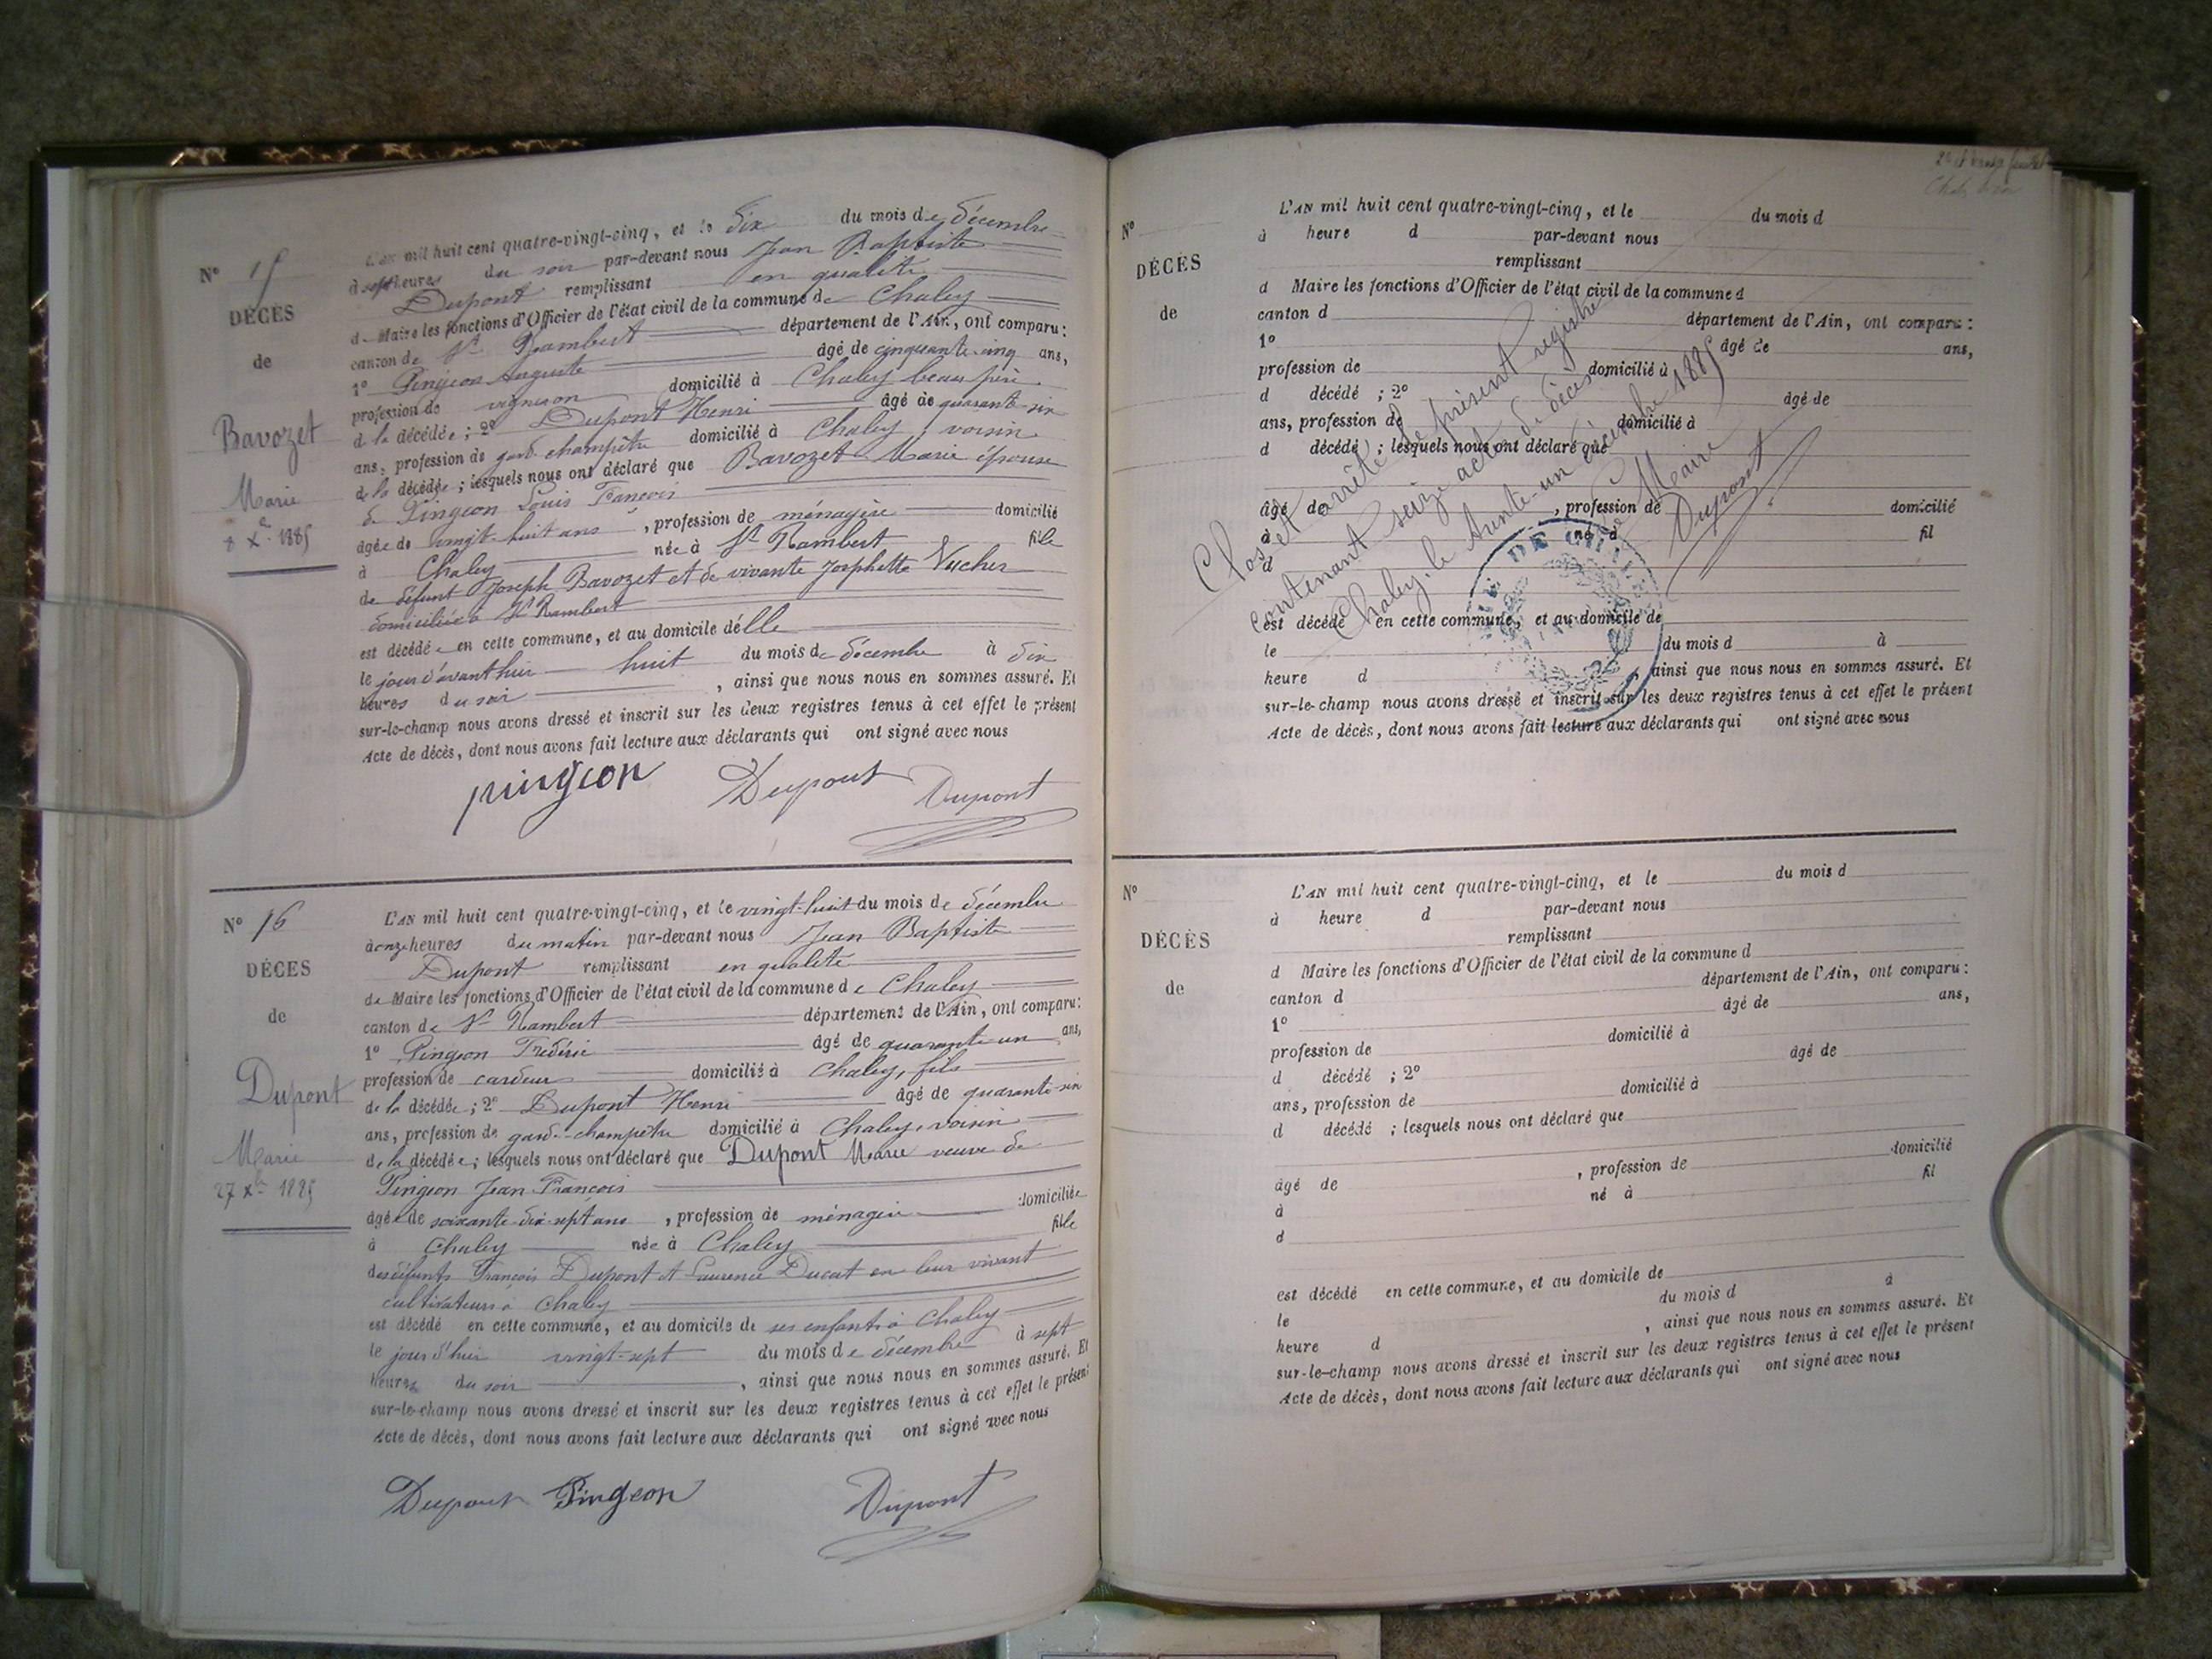 N° 15
DÉCÈS
de
Bavozet
Marie
8 Xe 1885
L'AN mil huit cent quatre-vingt-cinq, et le dix du mois de décembre
à sept heures du soir par-devant nous Jean Baptiste
Dupont remplissant en qualité
de Maire les fonctions d'Officier de l'état civil de la commune de Chaley
canton de St Rambert département de l'Ain, ont comparu :
1° Pingeon Auguste âgé de cinquante-cinq ans,
profession de vigneron domicilié à Chaley beau père
de la décédée ; 2° Dupont Henri âgé de quarante-six
ans, profession de garde champêtre domicilié à Chaley, voisin
de la décédée ; lesquels nous ont déclaré que Bavozet Marie épouse
de Pingeon Louis François
âgée de vingt-huit ans, profession de ménagère domicilié
à Chaley née à St Rambert fille
de défunt Joseph Bavozet et de vivante Josphette Vucher
domiciliée à St Rambert
est décédée en cette commune, et au domicile d'elle
le jour d'avant hier huit du mois de décembre à dix
heures du soir, ainsi que nous nous en sommes assuré. Et
sur-le-champ nous avons dressé et inscrit sur les deux registres tenus à cet effet le présent
Acte de décès, dont nous avons fait lecture aux déclarants qui ont signé avec nous
pingeon Dupont Dupont
N° 16
DÉCES
de
Dupont
Marie
27 Xbre 1885
L'AN mil huit cent quatre-vingt-cinq, et le vingt-huit du mois de décembre
à onze heures du matin par-devant nous Jean Baptiste
Dupont remplissant en qualité
de Maire les fonctions d'Officier de l'état civil de la commune de Chaley
canton de St Rambert département de l'Ain, ont comparu :
1° Pingeon Frédéric âgé de quarante un ans,
profession de cardeur domicilié à Chaley, fils
de la décédée ; 2° Dupont Henri âgé de quarante-six
ans, profession de garde-champêtre domicilié à Chaley, voisin
de la décédée ; lesquels nous ont déclaré que Dupont Marie veuve de
Pingeon Jean François
âgée de soixante-dix-sept ans, profession de ménagère domiciliée
à Chaley née à Chaley fille
des défunts François Dupont et Laurence Ducat en leur vivant
cultivateurs à Chaley
est décédé en cette commune, et au domicile de ses enfants à Chaley
le jour d'hier vingt-sept du mois de décembre à sept
heures du soir, ainsi que nous nous en sommes assuré. Et
sur-le-champ nous avons dressé et inscrit sur les deux registres tenus à cet effet le présent
Acte de décès, dont nous avons fait lecture aux déclarants qui ont signé avec nous
Dupont Pingeon Dupont
N°
DÉCÈS
de
L'AN mil huit cent quatre-vingt-cinq, et le du mois d
à heure d par-devant nous
remplissant
d Maire les fonctions d'Officier de l'état civil de la commune d
canton d département de l'Ain, ont comparu :
1° âgé de ans,
profession de domicilié à
d décédé ; 2° âgé de
ans, profession de domicilié à
d décédé ; lesquels nous ont déclaré que
âgé de, profession de domicilié
à né à fil
d
est décédé en cette commune, et au domicile de
le du mois d à
heure d, ainsi que nous nous en sommes assuré. Et
sur-le-champ nous avons dressé et inscrit sur les deux registres tenus à cet effet le présent
Acte de décès, dont nous avons fait lecture aux déclarants qui ont signé avec nous
Clos et arrêté le présent registre
contenant seize actes de décès
Chaley, le trente-un décembre 1885
Le Maire
Dupont
N°
DÉCÈS
de
L'AN mil huit cent quatre-vingt-cinq, et le du mois d
à heure d par-devant nous
remplissant
d Maire les fonctions d'Officier de l'état civil de la commune d
canton d département de l'Ain, ont comparu :
1° âgé de ans,
profession de domicilié à
d décédé ; 2° âgé de
ans, profession de domicilié à
d décédé ; lesquels nous ont déclaré que
âgé de, profession de domicilié
à né à fil
d
est décédé en cette commune, et au domicile de
le du mois d à
heure d, ainsi que nous nous en sommes assuré. Et
sur-le-champ nous avons dressé et inscrit sur les deux registres tenus à cet effet le présent
Acte de décès, dont nous avons fait lecture aux déclarants qui ont signé avec nous